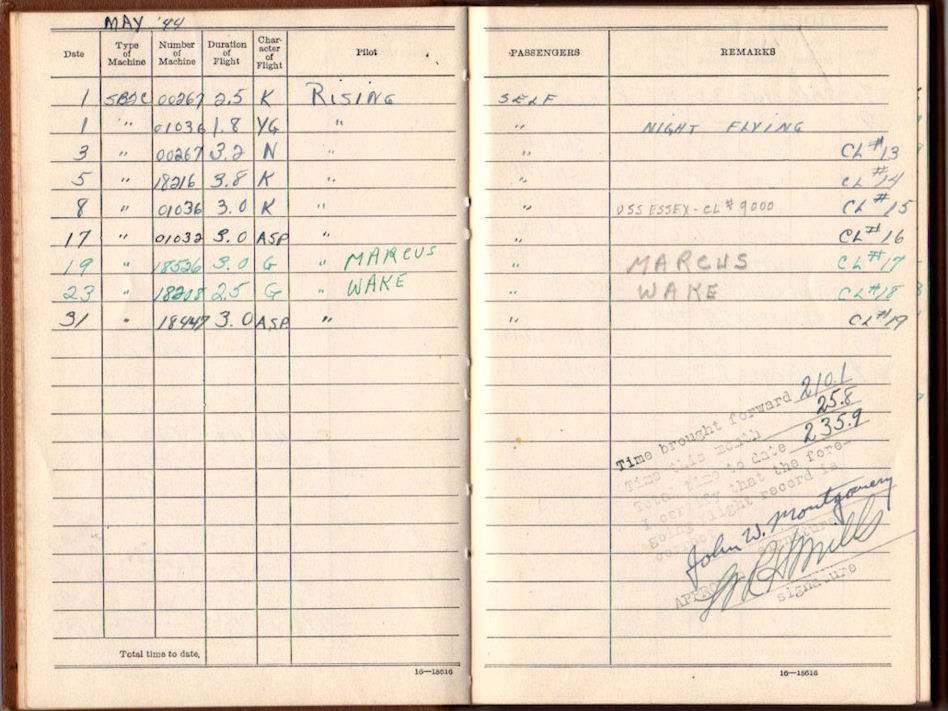 MAY '44
Date Type of Machine Number of Machine Duration of Flight Character of Flight Pilot PASSENGERS REMARKS
1 SB2C 00267 2.5 K RISING SELF
1 " 01036 1.8 YG " " NIGHT FLYING
3 " 00267 3.2 N " " CL #13
5 " 18216 3.8 K " " CL #14
8 " 01036 3.0 K " " USS ESSEX - CL #9000 CL #15
17 " 01032 3.0 ASP " " CL #16
19 " 18526 3.0 G " MARCUS " MARCUS CL #17
23 " 18208 2.5 G " WAKE " WAKE CL #18
31 " 18447 3.0 ASP " " CL #19
Time brought forward 210.1
Time this month 25.8
Total time to date 235.9
I certify that the fore-
going flight record is
John W. Montgomery
signature
Total time to date,
16—18616 16—18616